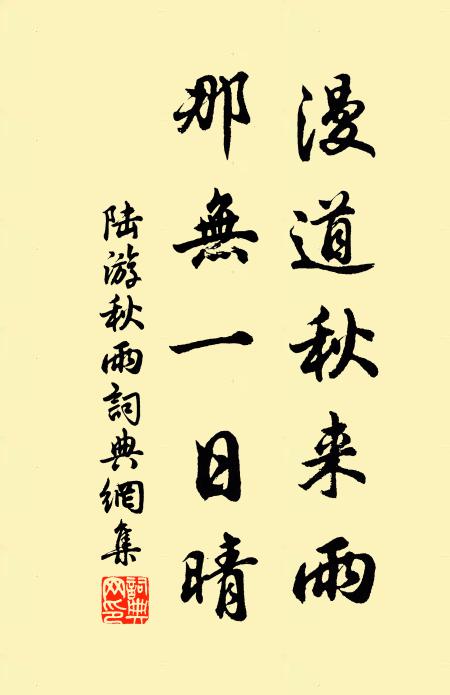 漫道秋来雨
那無一日晴
陆游秋雨詞典網集
詞典